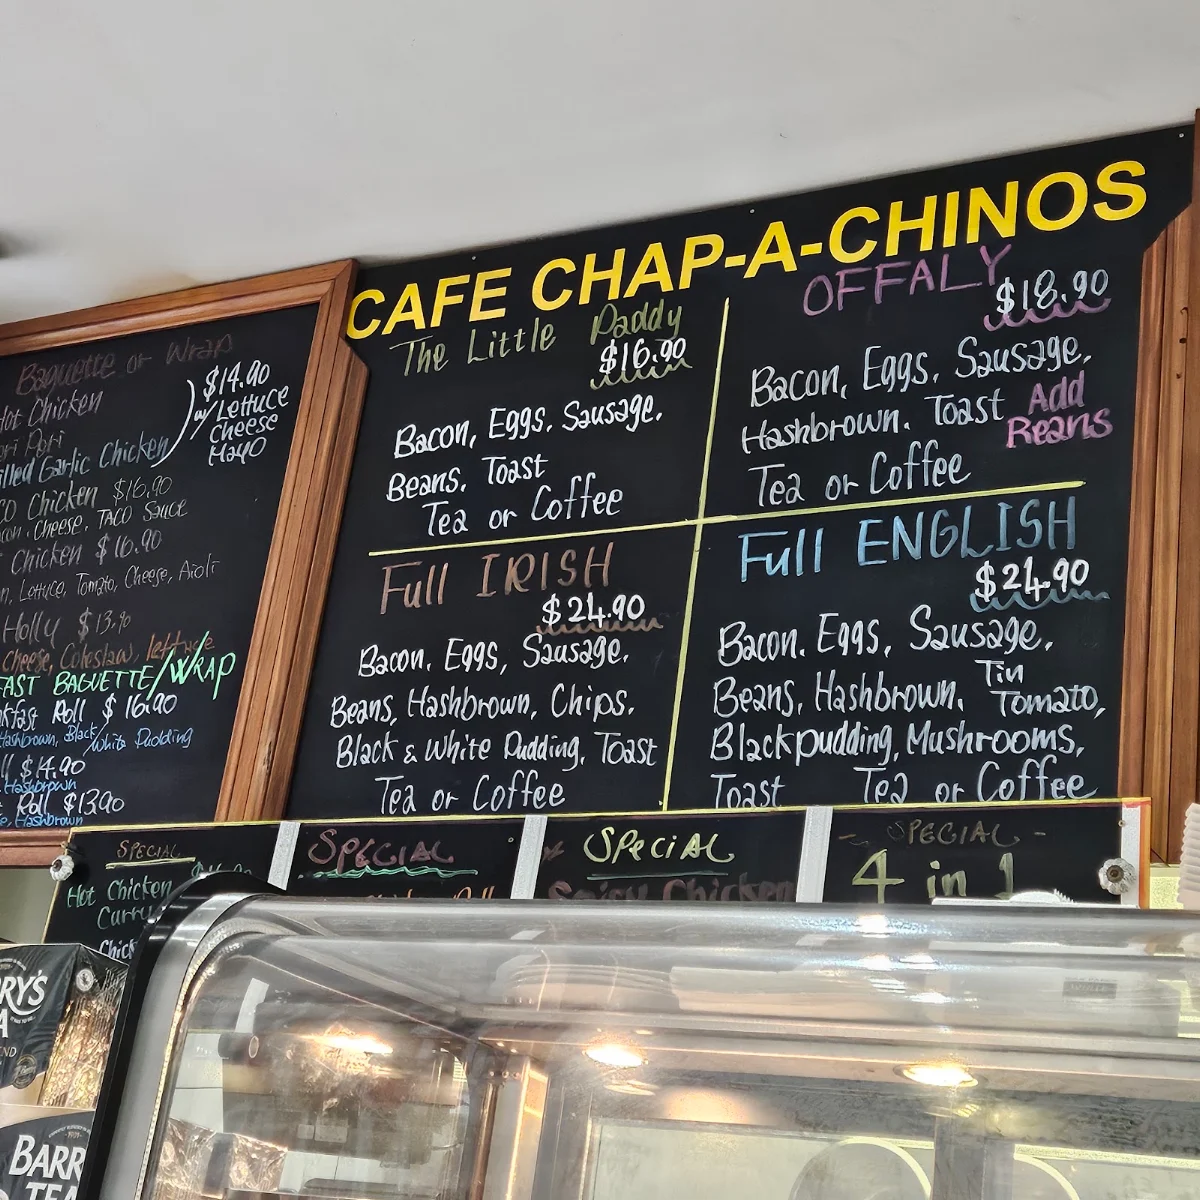 CAFE CHAP-A-CHINOS
The Little Paddy
$16.90
Bacon, Eggs, Sausage,
Beans, Toast
Tea or Coffee
OFFALY
$18.90
Bacon, Eggs, Sausage,
Hashbrown, Toast
Add
Beans
Tea or Coffee
Full IRISH
$24.90
Bacon, Eggs, Sausage,
Beans, Hashbrown, Chips,
Black & White Pudding, Toast
Tea or Coffee
Full ENGLISH
$24.90
Bacon, Eggs, Sausage,
Beans, Hashbrown, Tin Tomato,
Blackpudding, Mushrooms,
Toast Tea or Coffee
Baguette or Wrap
Hot Chicken
$14.90
w/ Lettuce
Cheese
Mayo
Peri Peri
Grilled Garlic Chicken
Chicken $16.90
Cheese, TACO Sauce
Chicken $16.90
Lettuce, Tomato, Cheese, Aioli
Holly $13.90
Cheese, Coleslaw, lettuce
BAGUETTE/WRAP
Roll $16.90
Hashbrown, Black/White Pudding
$14.90
Hashbrown
Roll $13.90
Hashbrown
SPECIAL
Hot Chicken
Curry
SPECIAL
SPECIAL
Spicy Chicken
- SPECIAL -
4 in 1
BARRY'S
TEA